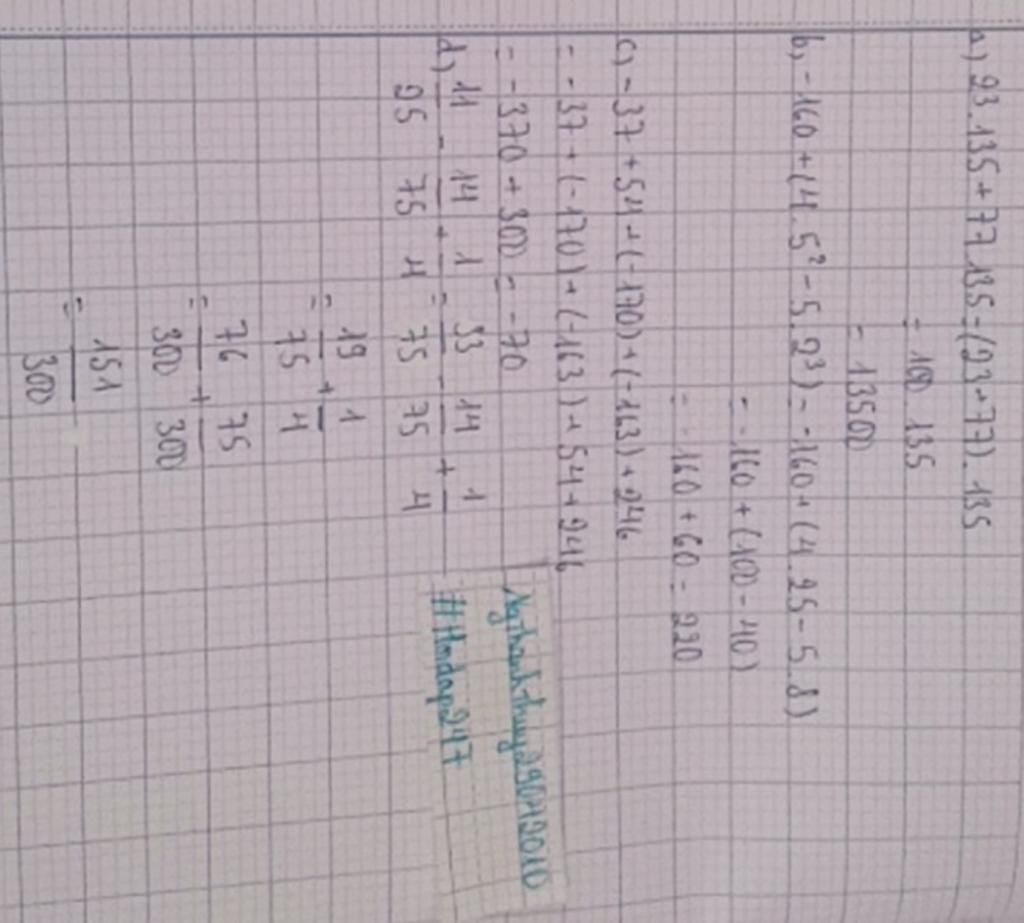 a) 23.135+77.135=(23+77).135
= 100.135
= 13500
b) -160+(4.5²-5.2³)=-160+(4.25-5.8)
= -160+(100-40)
= -160+60=220
c) -37+54+(-170)+(-163)+246
= -37+(-170)+(-163)+54+246
= -370+300=-70
d) 11/25 - 14/75 + 1/4 = 33/75 - 14/75 + 1/4
= 19/75 + 1/4
= 76/300 + 75/300
= 151/300
#Hoidap247